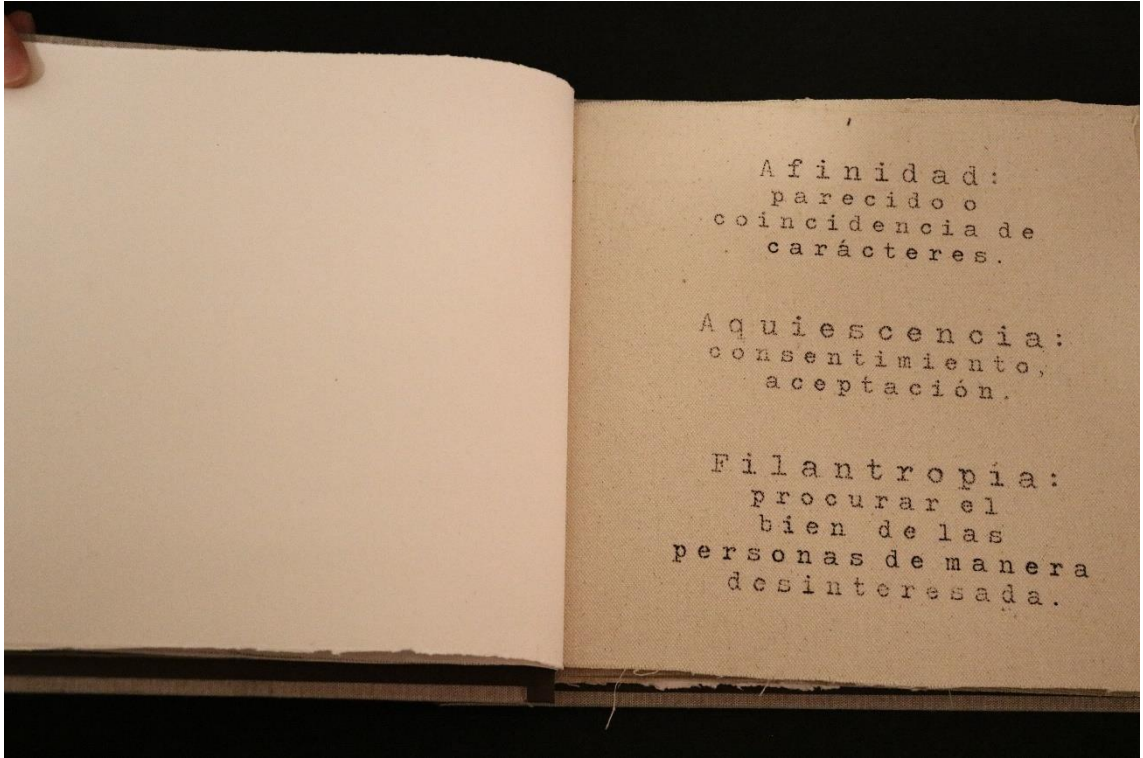 Afinidad:
parecido o
coincidencia de
carácteres.
Aquiescencia:
consentimiento,
aceptación.
Filantropía:
procurar el
bien de las
personas de manera
desinteresada.